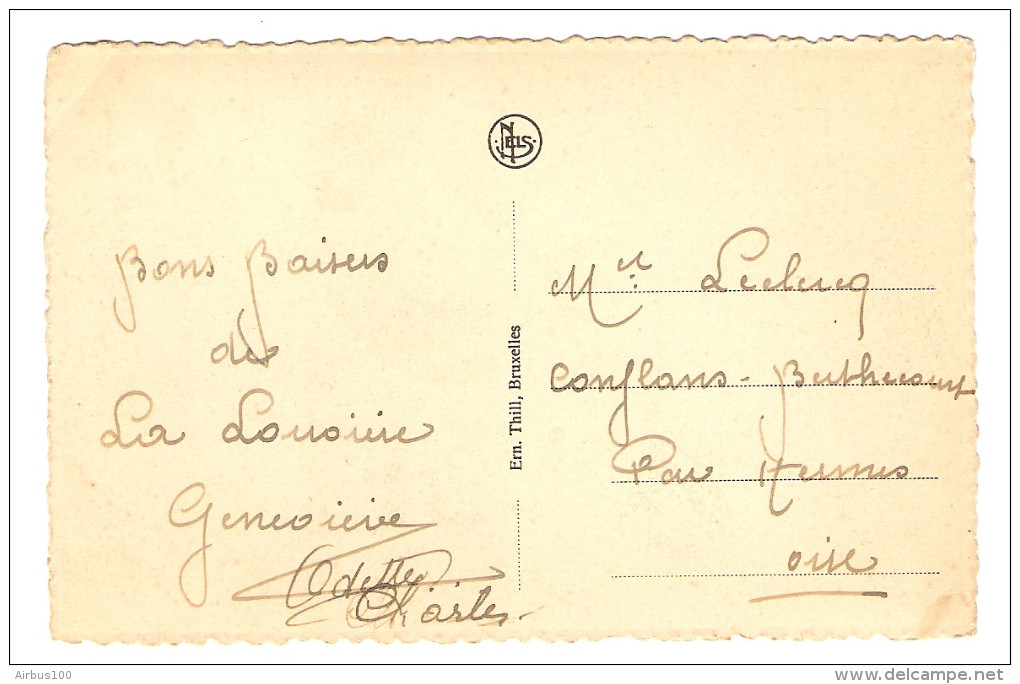 NELS
Bons Baisers
de
La Louvière
Geneviève
Odette
Charles
Ern. Thill, Bruxelles
Leclercq
Conflans - Berthecourt
Par Hermes
Oise
Airbus100
www.delcampe.net